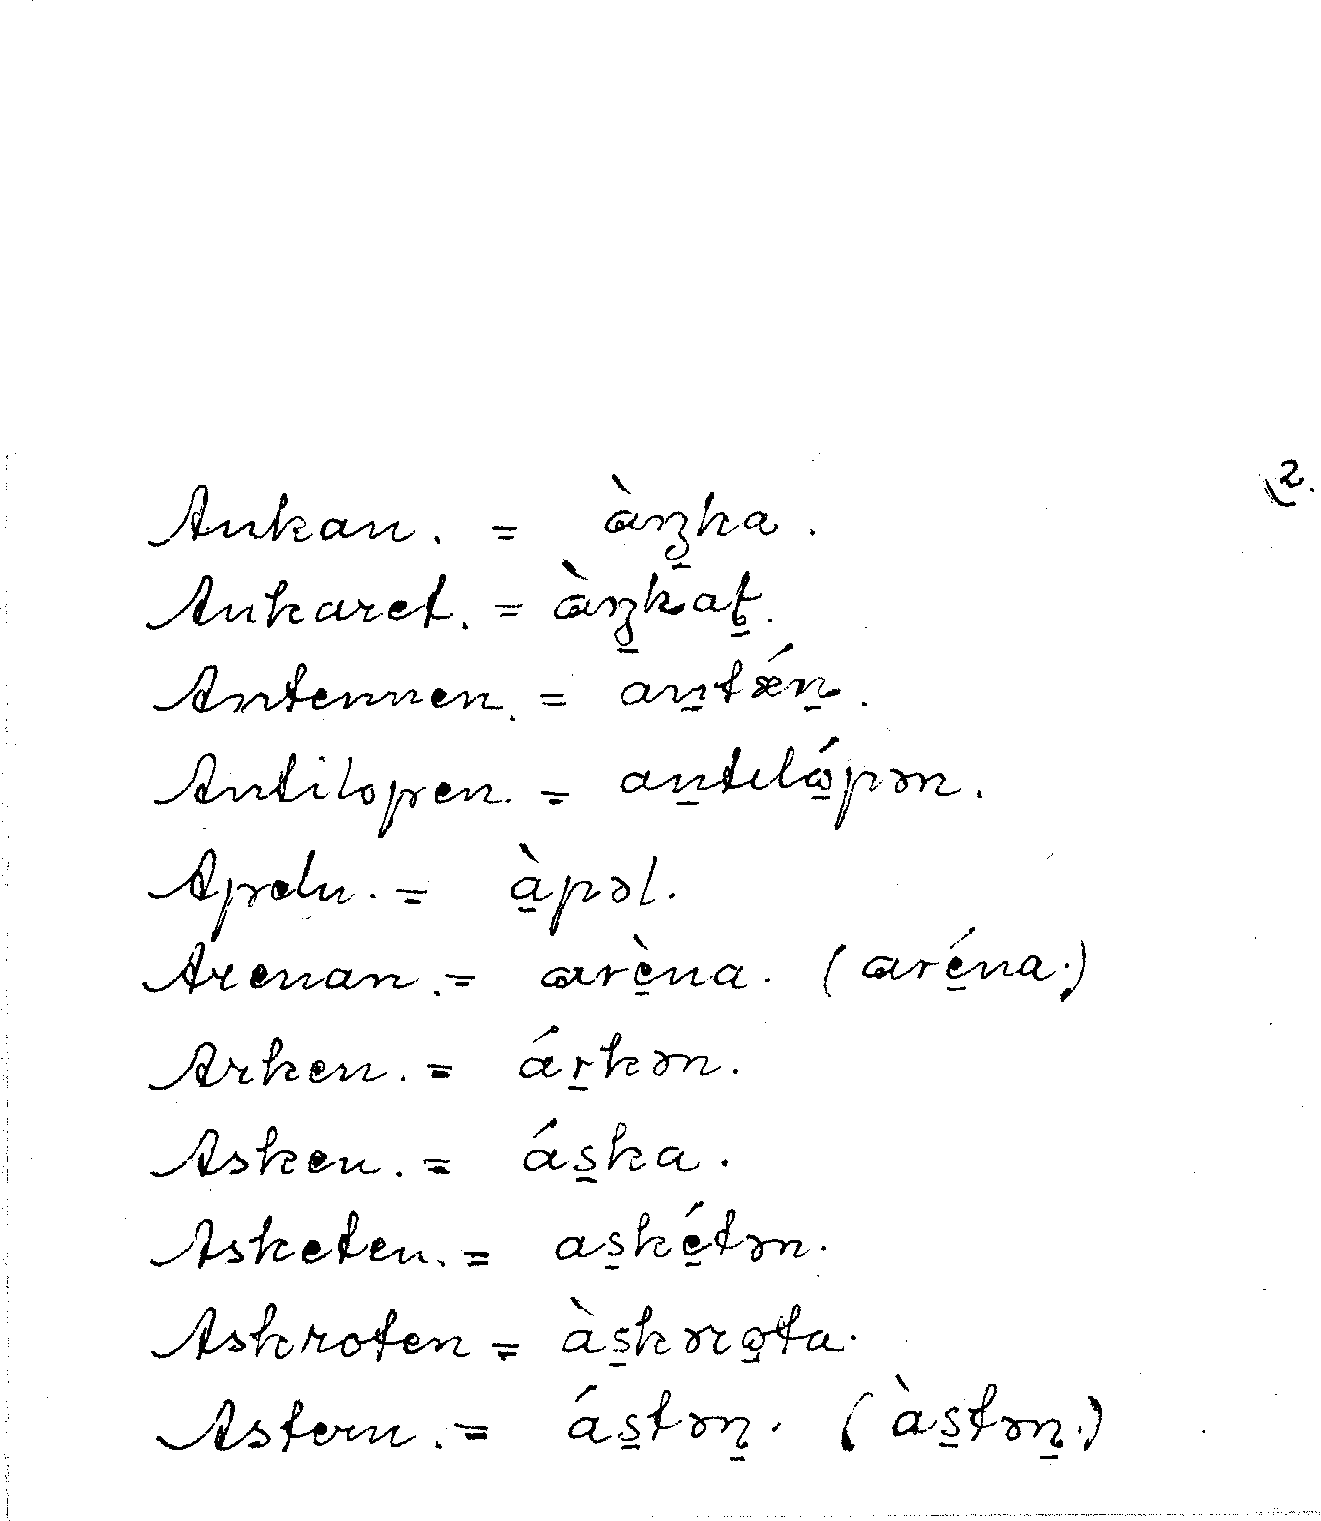 2.
Ankan. = àŋ̱ka.
Ankaret. = àŋ̱kaṯ.
Antennen. = aṉtǽṉ.
Antilopen. = aṉtılώ̱pən.
Apeln. = à̱pəl.
Arenan. = arè̱na. (aré̱na.)
Arken. = áṟkən.
Asken. = ás̱ka.
Asketen. = as̱ké̱tən.
Askroten = às̱kərω̱ta.
Astern. = ás̱təṉ. (às̱təṉ.)